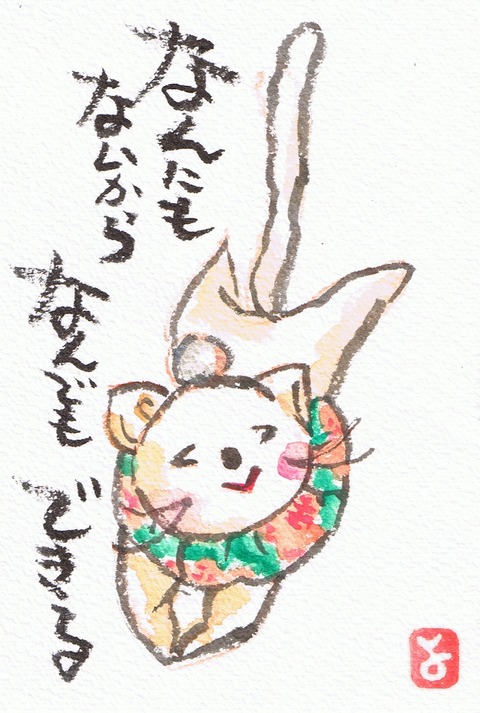 なんにも
ないから
なんでも
できる
と